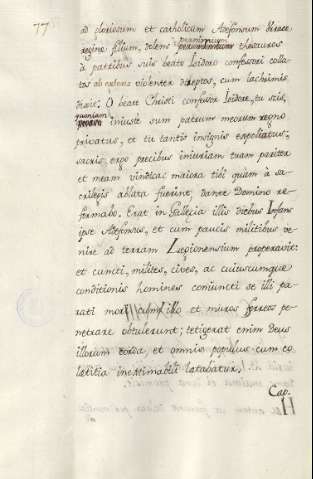 77
ad gloriosum et catholicum Adefonsum Urracæ
reginæ filium, dolens prænominatum thesauros
à partibus suis beato Isidoro confessori colla
tos ab extens violenter direptos, cum lachrimis
dixit: O beate Christi confessor Isidore, tu scis,
quoniam
iniuste sum patrum meorum regno
privatus, et tu tantis insignis expoliatus,
sacris ergo precibus iniuriam tuam pariter
et meam vindica; maiora tibi quàm à sa
crilegis ablata fuerint, dante Domino re
formabo. Erat in Gallecia illis diebus Infans
ipse Adefonsus, et cum paucis militibus ve
nire ad terram Legionensium properavit:
et cuncti, milites, cives, ac cuiuscumque
conditionis homines coniuncti se illi pa
rati mori cum illo et muros ferreos pe
netrare obtulerunt; tetigerat enim Deus
illorum corda, et omnis populus cum eo
lætitia inextimabili lætabatur.
Cap.
H